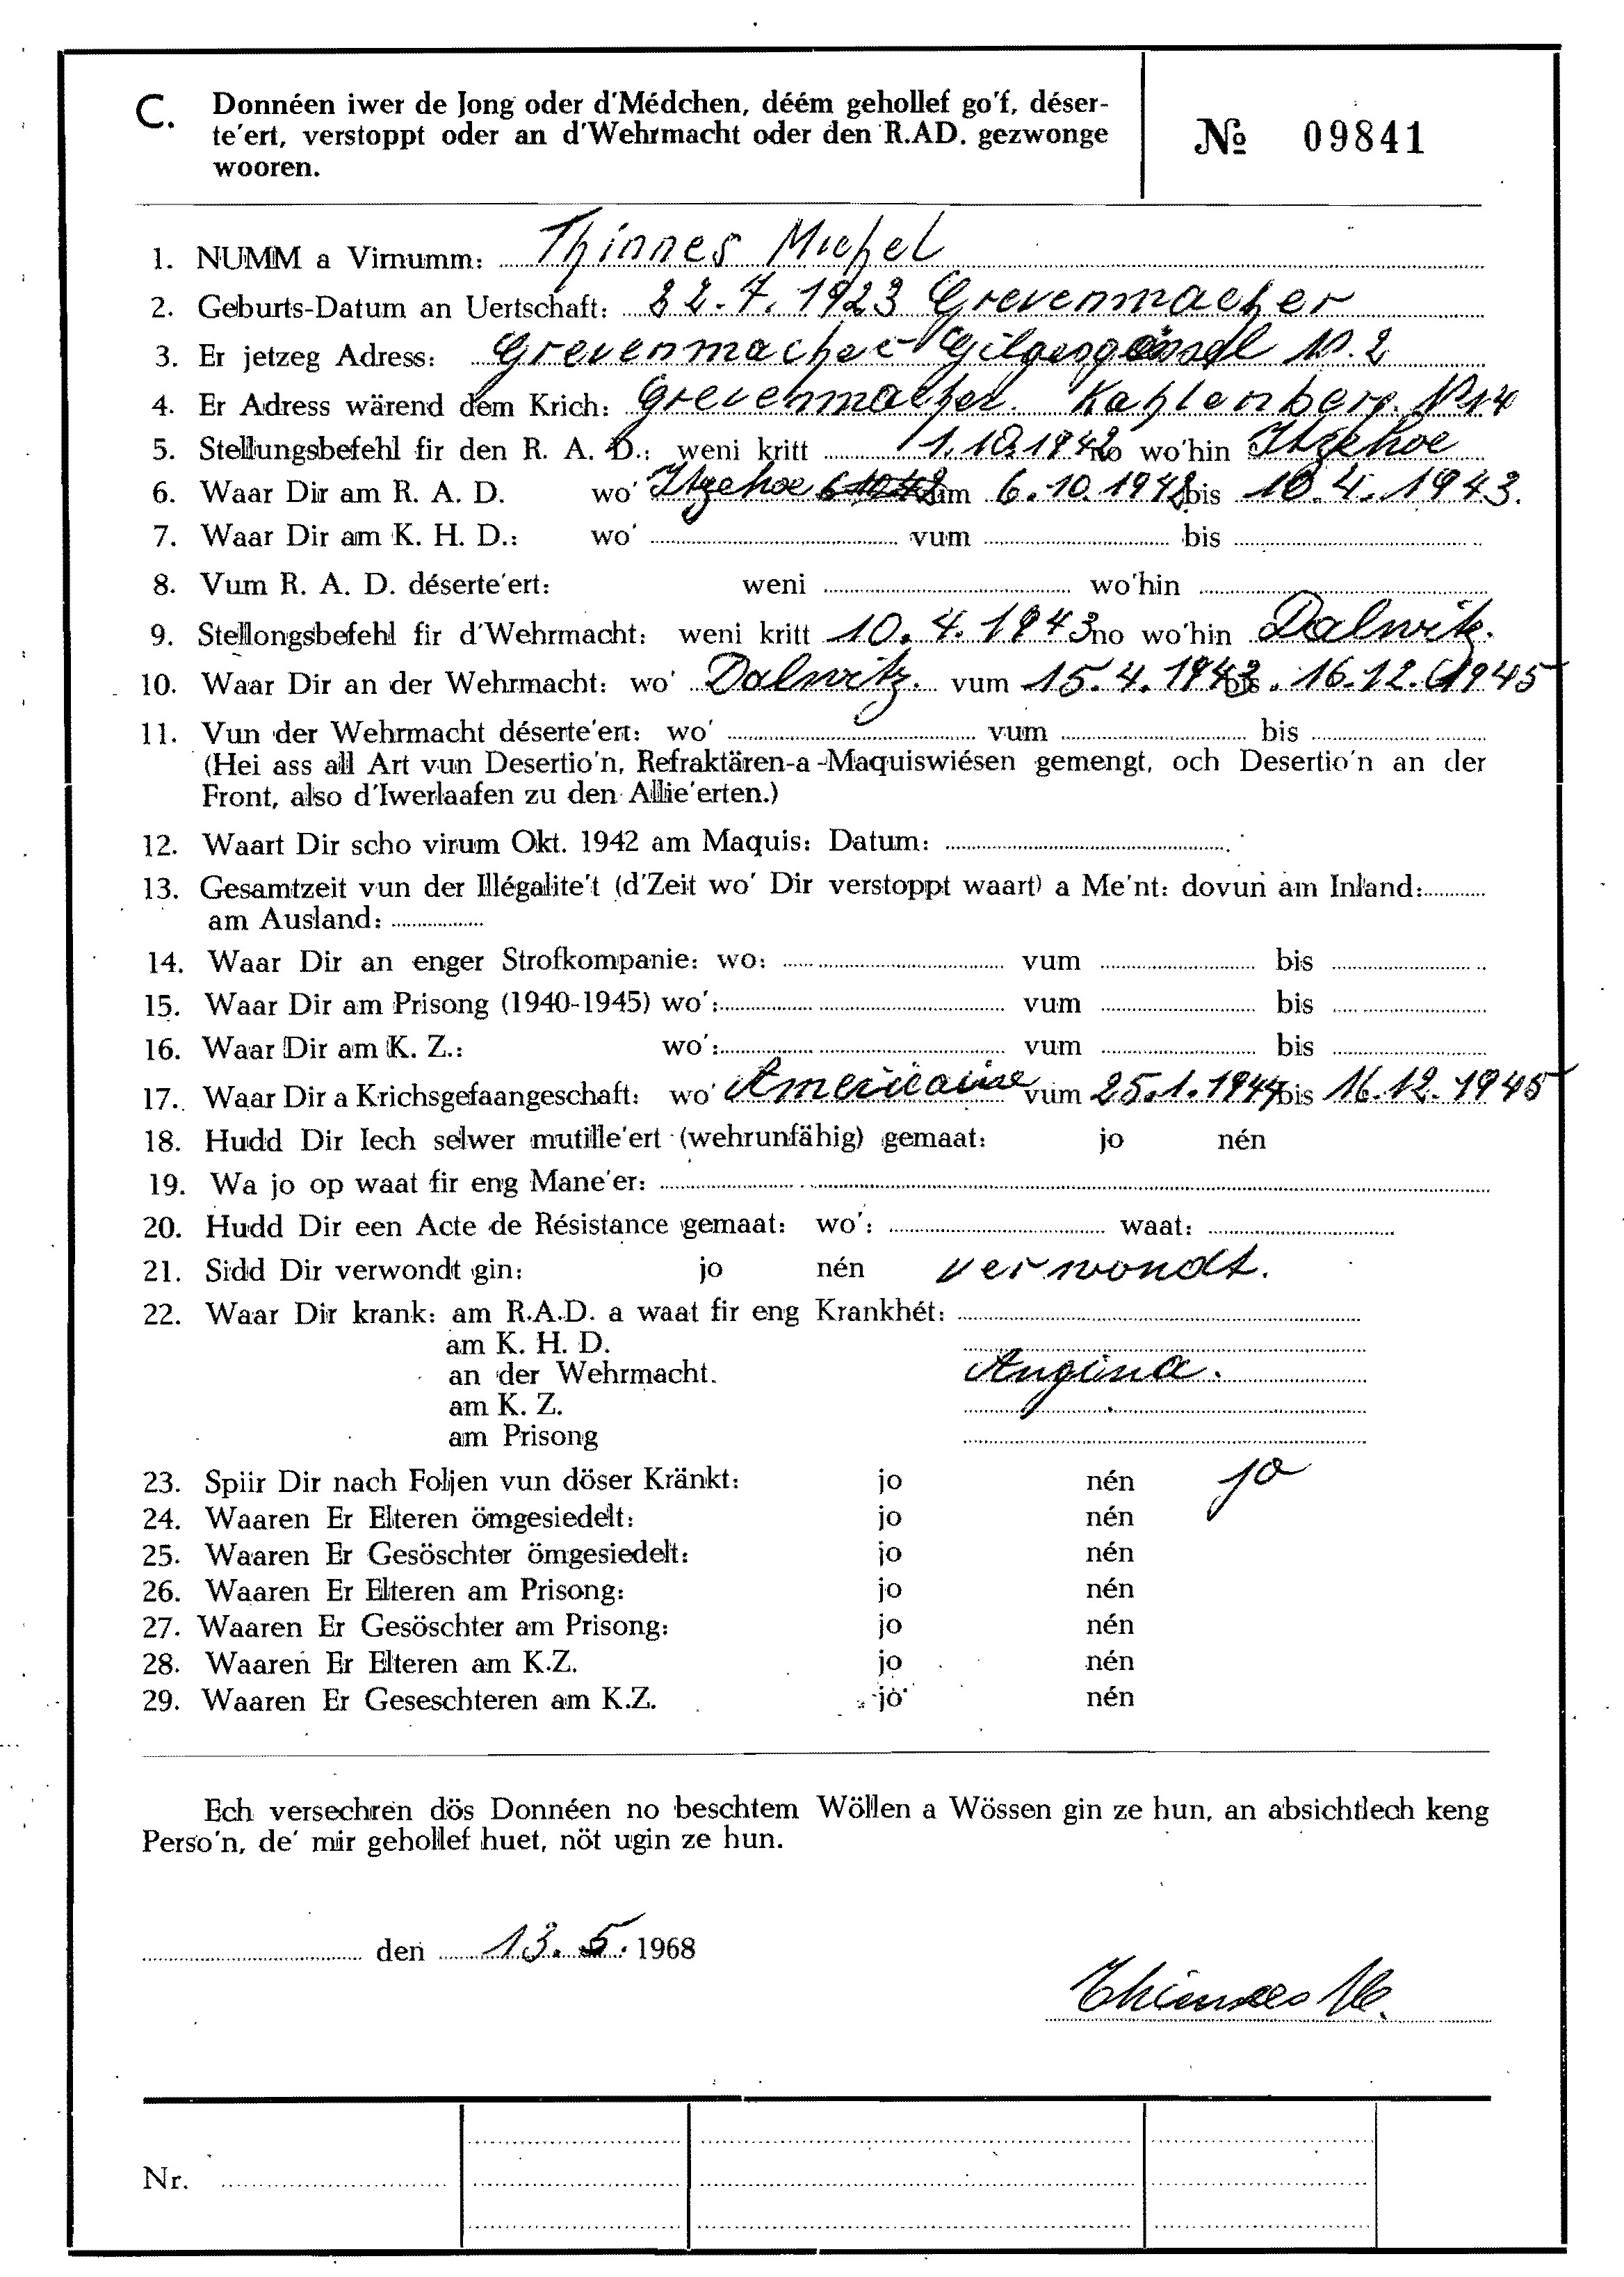 C. Donnéen iwer de Jong oder d'Médchen, déém gehollef go'f, déser-
te'ert, verstoppt oder an d'Wehrmacht oder den R.AD. gezwonge
wooren.
№ 09841
1. NUMM a Virnumm: Thinnes Michel
2. Geburts-Datum an Uertschaft: 22.7.1923 Grevenmacher
3. Er jetzeg Adress: Grevenmacher N.2
4. Er Adress wärend dem Krich: Grevenmacher. Kahlenberg. N14
5. Stellungsbefehl fir den R. A. D.: weni kritt 1.10.1942 no wo'hin Itzehoe
6. Waar Dir am R. A. D. wo' Itzehoe vum 6.10.1942 bis 10.4.1943.
7. Waar Dir am K. H. D.: wo' vum bis
8. Vum R. A. D. déserte'ert: weni wo'hin
9. Stellongsbefehl fir d'Wehrmacht: weni kritt 10.4.1943 no wo'hin Dalwitz.
10. Waar Dir an der Wehrmacht: wo' Dalwitz. vum 15.4.1943 bis 16.12.1945
11. Vun der Wehrmacht déserte'ert: wo' vum bis
(Hei ass all Art vun Desertio'n, Refraktären-a-Maquiswiésen gemengt, och Desertio'n an der
Front, also d'Iwerlaafen zu den Allie'erten.)
12. Waart Dir scho virum Okt. 1942 am Maquis: Datum:
13. Gesamtzeit vun der Illégalite't (d'Zeit wo' Dir verstoppt waart) a Me'nt: dovun am Inland:
am Ausland:
14. Waar Dir an enger Strofkompanie: wo: vum bis
15. Waar Dir am Prisong (1940-1945) wo': vum bis
16. Waar Dir am K. Z.: wo': vum bis
17. Waar Dir a Krichsgefaangeschaft: wo' Americaine vum 25.1.1944 bis 16.12.1945
18. Hudd Dir Iech selwer mutille'ert (wehrunfähig) gemaat: jo nén
19. Wa jo op waat fir eng Mane'er:
20. Hudd Dir een Acte de Résistance gemaat: wo': waat:
21. Sidd Dir verwondt gin: jo nén verwondt.
22. Waar Dir krank: am R.A.D. a waat fir eng Krankhét:
am K. H. D.
an der Wehrmacht. Angina.
am K. Z.
am Prisong
23. Spiir Dir nach Foljen vun döser Kränkt: jo nén jo
24. Waaren Er Elteren ömgesiedelt: jo nén
25. Waaren Er Gesöschter ömgesiedelt: jo nén
26. Waaren Er Elteren am Prisong: jo nén
27. Waaren Er Gesöschter am Prisong: jo nén
28. Waaren Er Elteren am K.Z. jo nén
29. Waaren Er Geseschteren am K.Z. jo nén
Ech versechren dös Donnéen no beschtem Wöllen a Wössen gin ze hun, an absichtlech keng
Perso'n, de' mir gehollef huet, nöt ugin ze hun.
den 13.5. 1968
Thinnes M.
Nr.